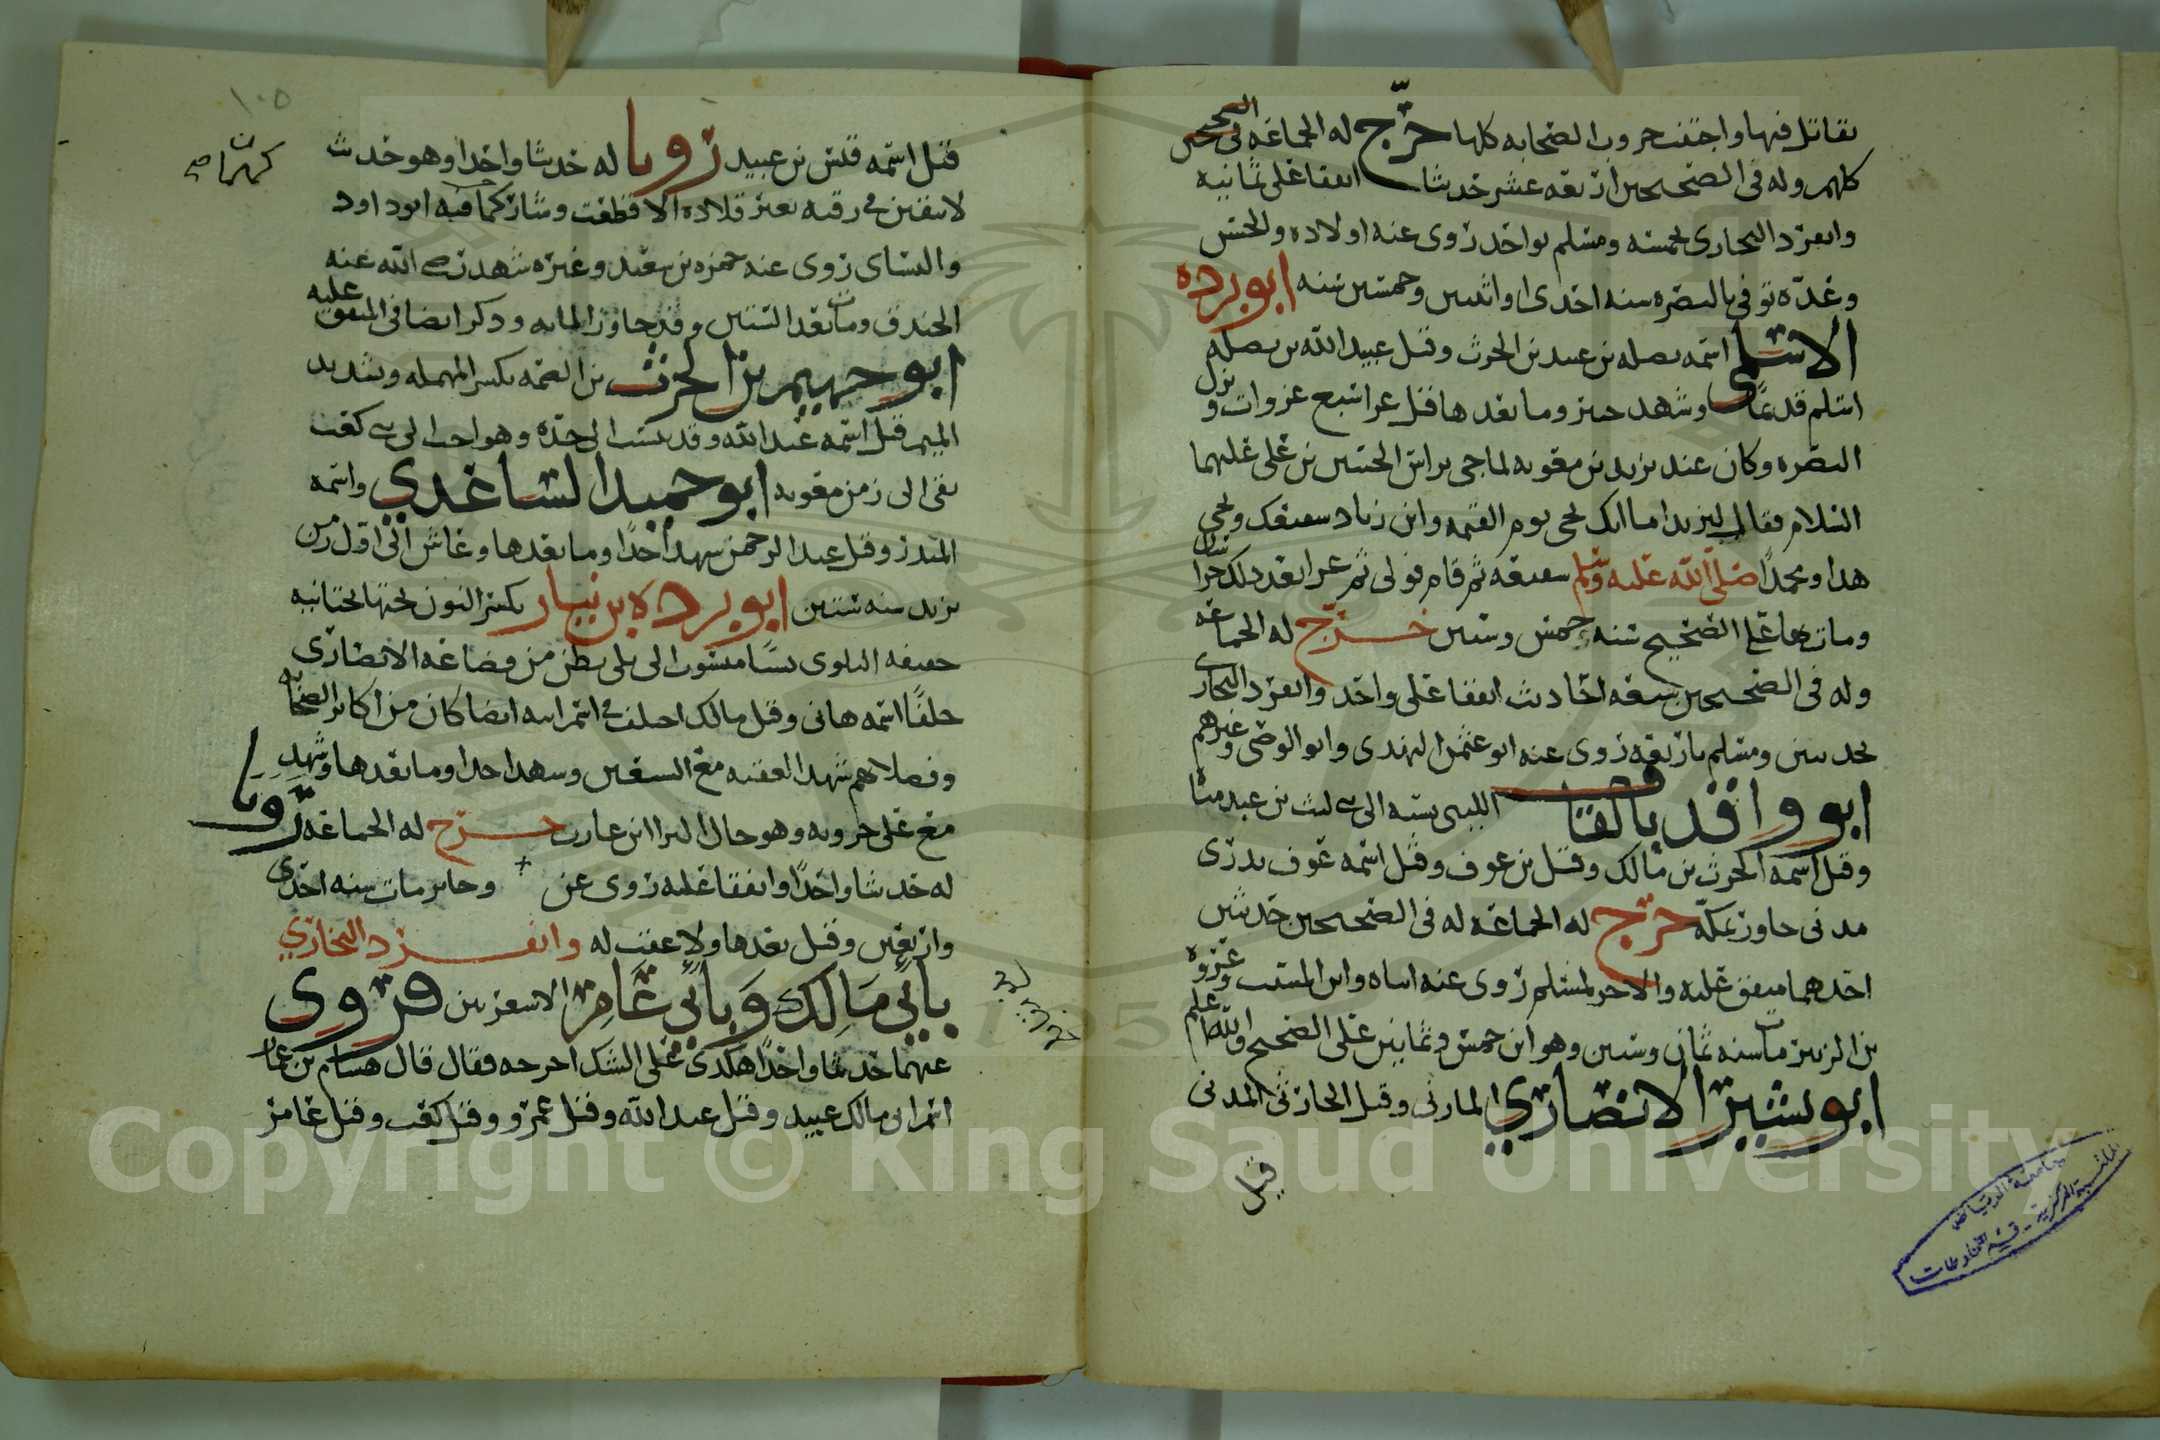 يقاتل فيها واجتنب حروب الصحابه كلها خرّج له الجماعه
كلهم وله في الصحيحين اربعه عشر حديثا اتفقا على ثمانيه
وانفرد البخاري بخمسه ومسلم بواحد روى عنه اولاده والحسن
وعدّه توفي بالبصره سنه احدى او اثنين وخمسين سنه ابو برده
الاسلمي اسمه نضله بن عبيد بن الحرث وقيل عبيد الله بن نضله
اسلم قديمًا وشهد حنين وما بعدها قيل غزا سبع غزوات ونزل
البصره وكان عند يزيد بن معويه لما جي براس الحسين بن علي عليهما
السلام فقال ليزيد اما انك تجي يوم القيمه وابن زياد شفيعك وتجي
هذا ومحمدًا صلى الله عليه وسلم شفيعه ثم قام فولى ثم غزا بعد ذلك
ومات بها على الصحيح سنه خمس وستين خرّج له الجماعه
وله في الصحيحين سبعه احاديث اتفقا على واحد وانفرد البخاري
بحديثين ومسلم باربعه روى عنه ابو عثمن النهدي وابو الوضي وغيرهم
ابو واقد بالقاف الليثي نسبه الى ليث بن عبد مناة
وقيل اسمه الحرث بن مالك وقيل بن عوف وقيل اسمه عوف بدري
مدني جاور بمكّة خرّج له الجماعه له في الصحيحين حديثين
احدهما متفق عليه والاخر لمسلم روى عنه ابناه وابن المسيب وعروه
بن الزبير مات سنه ثمان وستين وهو ابن خمس وثمانين على الصحيح والله اعلم
ابو بشير الانصاري المازني وقيل الحارثي المدني
قيل
١٠٥
قيل اسمه قيس بن عبيد رويا له حديثا واحدا وهو حديث
لا تبقين في رقبه بعير قلاده الا قطعت وشاركهما فيه ابو داود
والنساي روى عنه حمزه بن سعيد وغيره شهد رضي الله عنه
الخندق ومات بعد الستين وقد جاوز المايه وذكر ايضا في المتفق عليه
ابو جهيم بن الحرث بن الصمه بكسر المهمله وتشديد
الميم قيل اسمه عبد الله وقد ينسب الى جدّه وهو ابن اخت ابي بن كعب
بقي الى زمن معويه ابو حميد الساعدي واسمه
المنذر وقيل عبد الرحمن شهد احدًا وما بعدها وعاش الى اول زمن
يزيد سنه ستين ابو برده بن نيار بكسر النون تحتها تحتانيه
خفيفه البلوي نسبًا منسوب الى بلي بطن من قضاعه الانصاري
حلفًا اسمه هاني وقيل مالك اختلف في اسم ابيه ايضا كان من اكابر الصحابه
وفضلاهم شهد العقبه مع السبعين وشهد احدا وما بعدها وشهد
مع علي حروبه وهو خال البرا ابن عازب خرّج له الجماعه رويا
له حديثا واحدًا واتفقا عليه روى عن وجابر مات سنه احدى
واربعين وقيل بعدها ولا عقب له وانفرد البخاري
بأبي مالك وبأبي عامر الاشعريين فروى
عنهما حديثا واحدًا هكذي على الشك اخرجه فقال قال هشام بن عمار
اسم ابي مالك عبيد وقيل عبد الله وقيل عمرو وقيل كعب وقيل عامر
جامعة الرياض
المكتبة المركزية - قسم المخطوطات
Copyright © King Saud University
1957